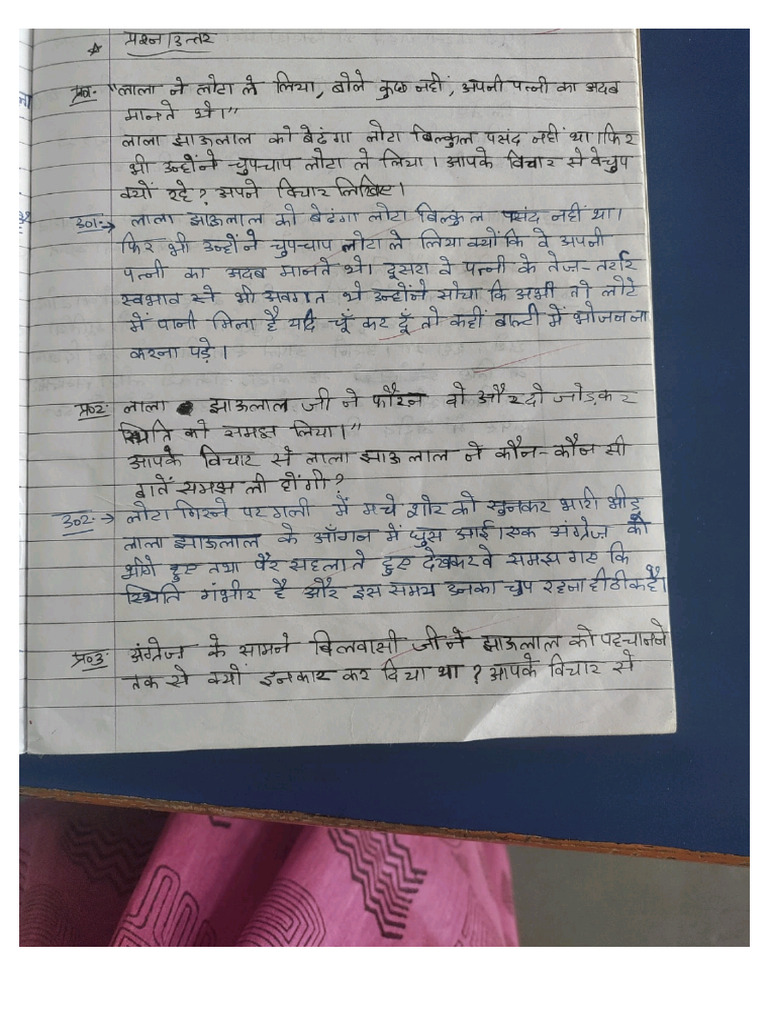 प्रश्न/उत्तर
प्र०1- "लाला ने लोटा ले लिया, बोले कुछ नहीं, अपनी पत्नी का अदब
मानते थे।"
लाला झाऊलाल को बेढंगा लोटा बिल्कुल पसंद नहीं था। फिर
भी उन्होंने चुपचाप लोटा ले लिया। आपके विचार से वे चुप
क्यों रहे? अपने विचार लिखिए।
उ०1-> लाला झाऊलाल को बेढंगा लोटा बिल्कुल पसंद नहीं था।
फिर भी उन्होंने चुपचाप लोटा ले लिया क्योंकि वे अपनी
पत्नी का अदब मानते थे। दूसरा वे पत्नी के तेज-तर्रार
स्वभाव से भी अवगत थे उन्होंने सोचा कि अभी तो लोटे
में पानी मिला है यदि चूँ कर दूँ तो कहीं बाल्टी में भोजन ना
करना पड़े।
प्र०2- लाला झाऊलाल जी ने फौरन दो और दो जोड़कर
स्थिति को समझ लिया।"
आपके विचार से लाला झाऊलाल ने कौन-कौन सी
बातें समझ ली होंगी?
उ०2-> लोटा गिरने पर गली में मचे शोर को सुनकर भारी भीड़
लाला झाऊलाल के आँगन में घुस आई। एक अंग्रेज़ को
भीगे हुए तथा पैर सहलाते हुए देखकर वे समझ गए कि
स्थिति गंभीर है और इस समय उनका चुप रहना ही ठीक है।
प्र०3- अंग्रेज़ के सामने बिलवासी जी ने झाऊलाल को पहचानने
तक से क्यों इनकार कर दिया था? आपके विचार से